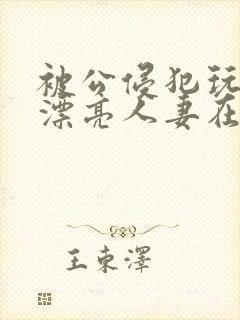 被公侵犯玩
漂亮人妻在
王东泽